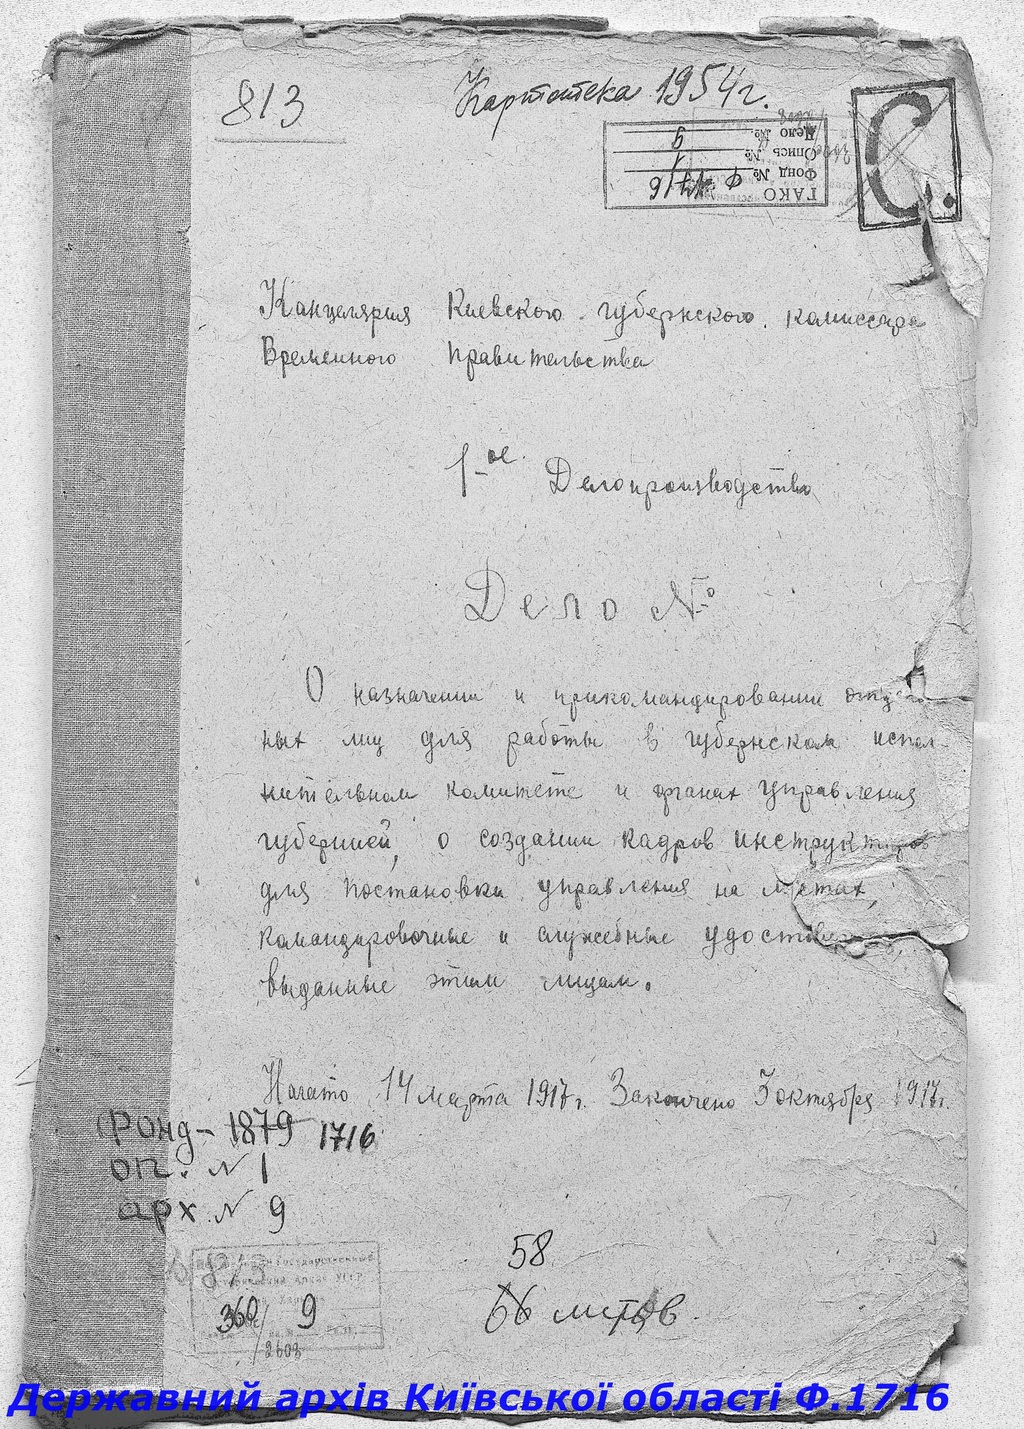 813
Картотека 1954 г.
ГАКО
Фонд № Ф 1716
Опись № 1
Дело № 9
С.
Канцелярия Киевского губернского комиссара
Временного Правительства
1-ое Делопроизводство
Дело №
О назначении и прикомандировании отдель
ных лиц для работы в губернском испол-
нительном комитете и органах управления
губернией, о создании кадров инструкторов
для постановки управления на местах,
командировочные и служебные удостовер
выданные этим лицам.
Начато 14 марта 1917 г. Закончено 3 октября 1917 г.
Фонд - 1879 1716
оп. № 1
арх № 9
58
66 листов.
360 9
2608
Державний архів Київської області Ф.1716